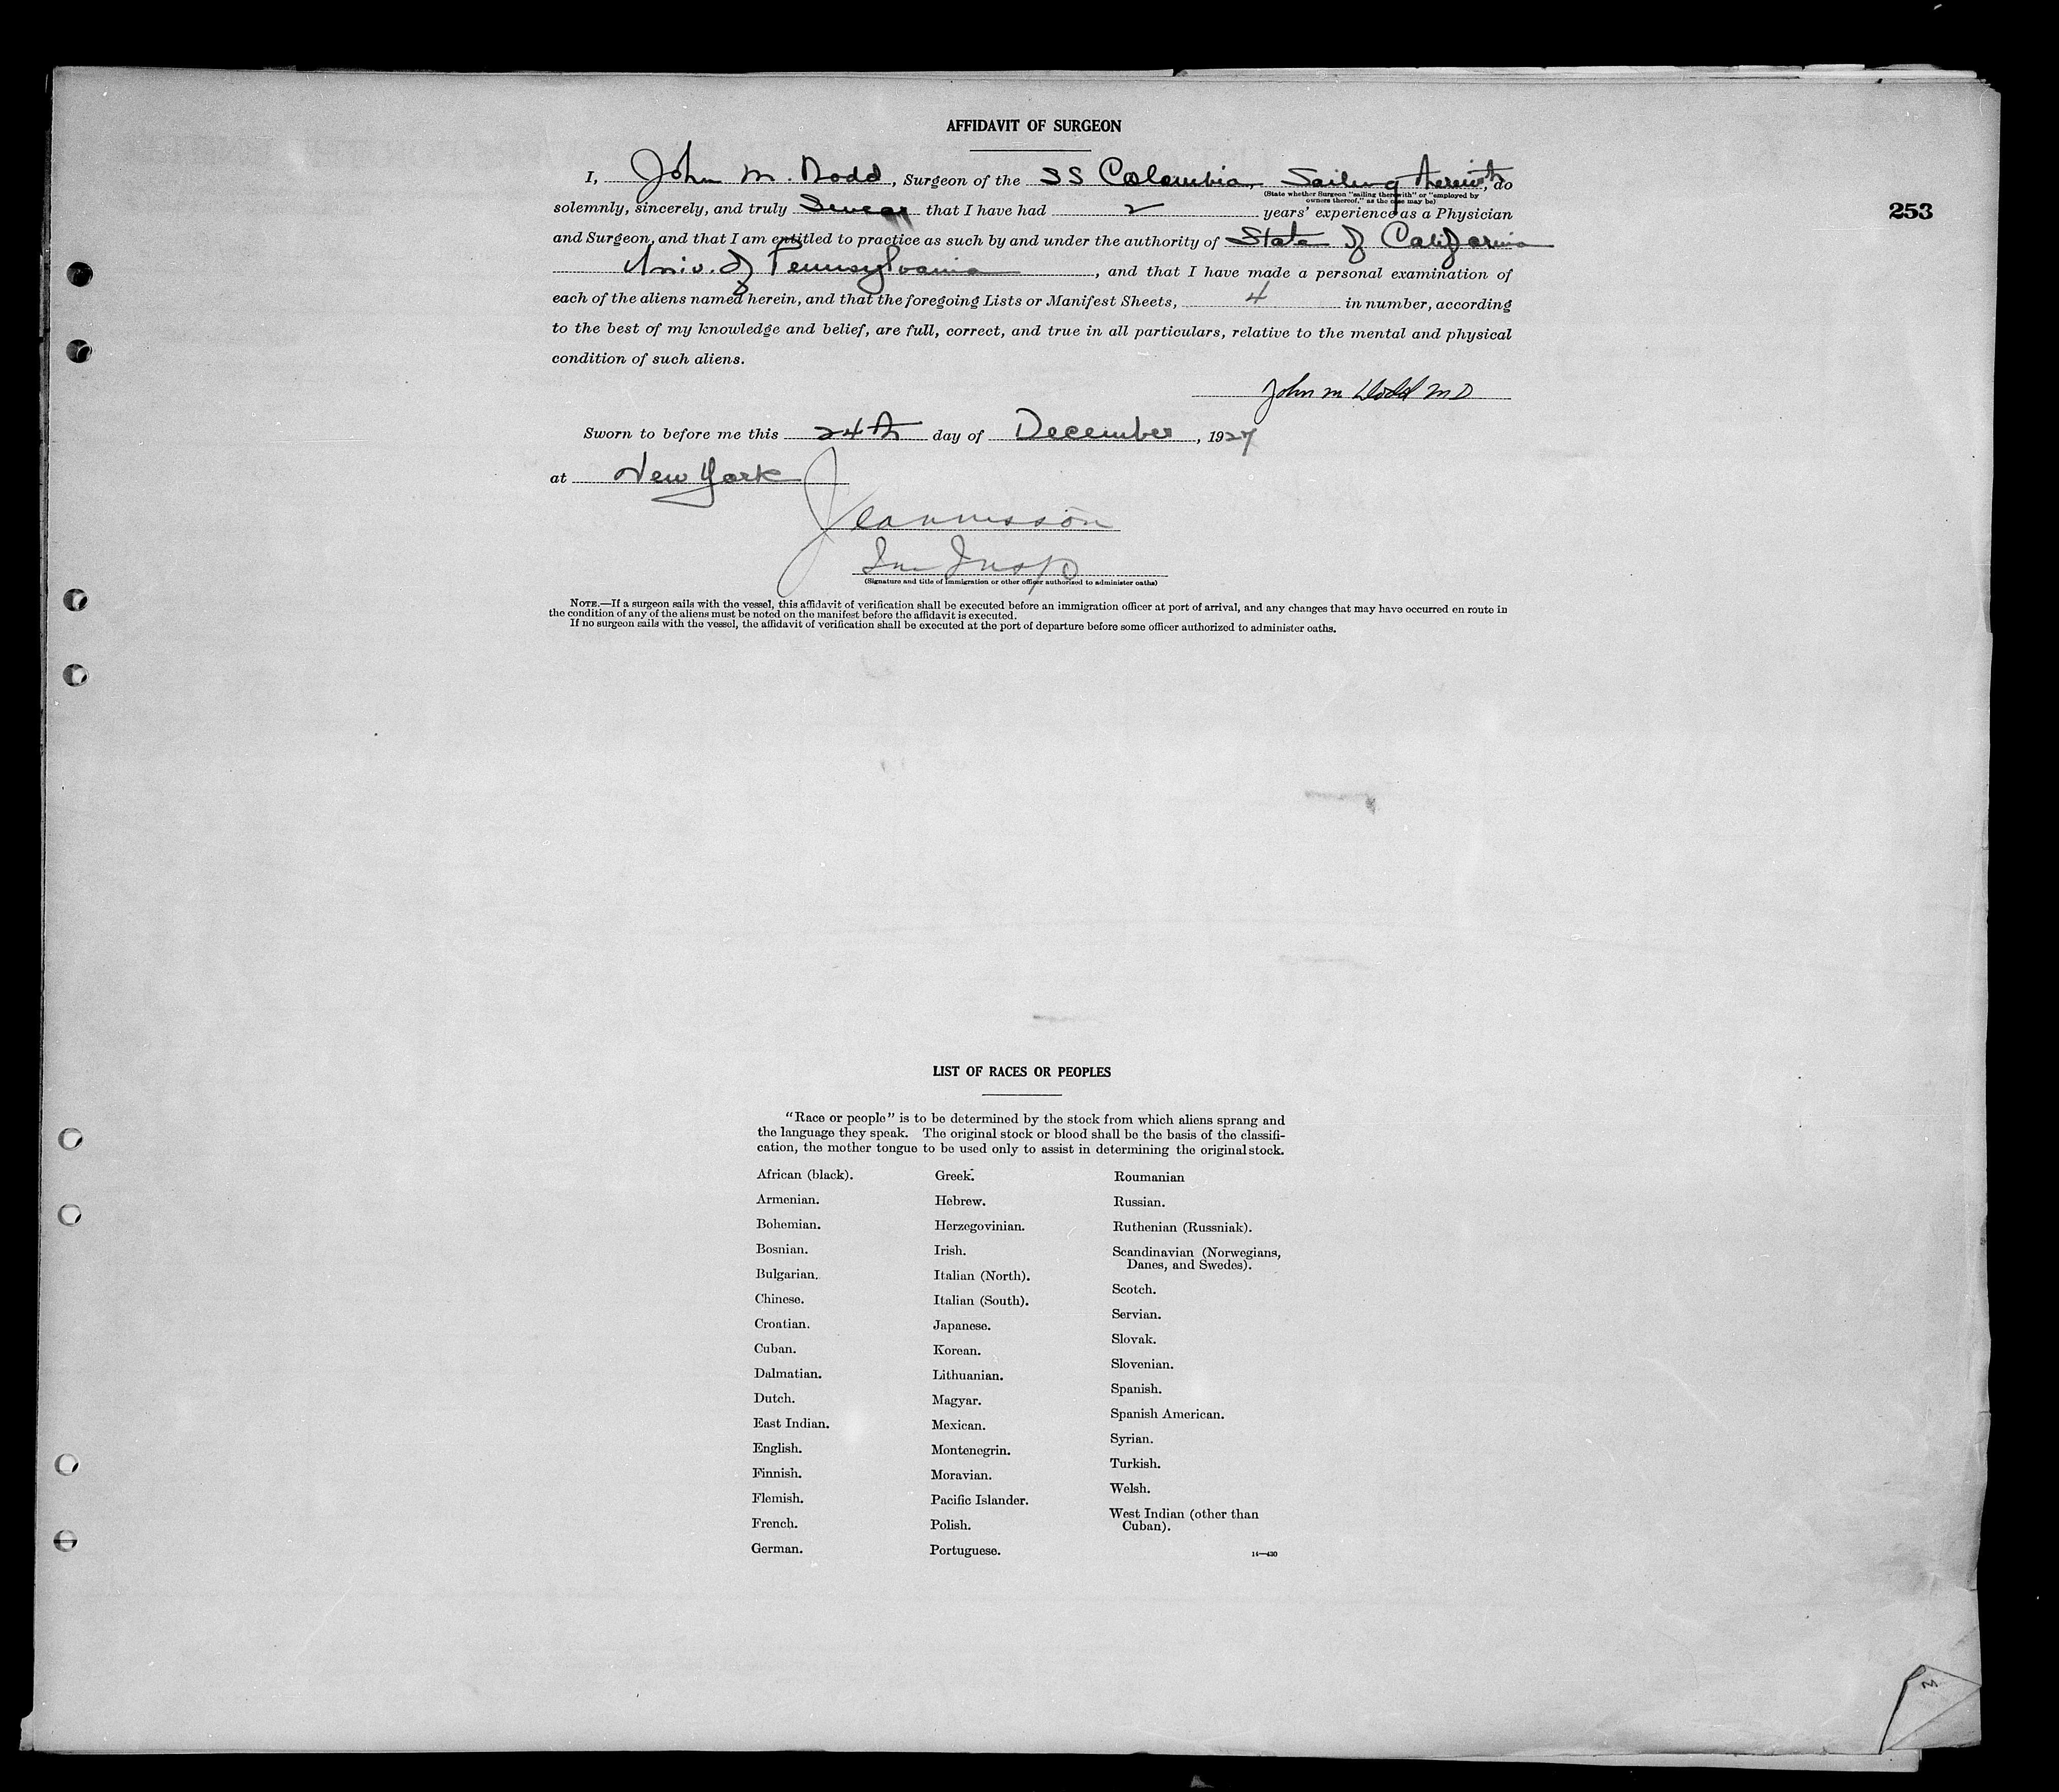 AFFIDAVIT OF SURGEON
I, John M. Dodd, Surgeon of the SS Columbia Sailing therewith, do
(State whether Surgeon "sailing therewith" or "employed by
owners thereof," as the case may be)
253
solemnly, sincerely, and truly Swear that I have had 2 years' experience as a Physician
and Surgeon, and that I am entitled to practice as such by and under the authority of State of California
Univ. of Pennsylvania, and that I have made a personal examination of
each of the aliens named herein, and that the foregoing Lists or Manifest Sheets, 4 in number, according
to the best of my knowledge and belief, are full, correct, and true in all particulars, relative to the mental and physical
condition of such aliens.
John M Dodd MD
Sworn to before me this 24th day of December, 1927
at New York
Imm Insp
(Signature and title of immigration or other officer authorized to administer oaths)
NOTE.—If a surgeon sails with the vessel, this affidavit of verification shall be executed before an immigration officer at port of arrival, and any changes that may have occurred en route in
the condition of any of the aliens must be noted on the manifest before the affidavit is executed.
If no surgeon sails with the vessel, the affidavit of verification shall be executed at the port of departure before some officer authorized to administer oaths.
LIST OF RACES OR PEOPLES
"Race or people" is to be determined by the stock from which aliens sprang and
the language they speak. The original stock or blood shall be the basis of the classifi-
cation, the mother tongue to be used only to assist in determining the original stock.
African (black).
Armenian.
Bohemian.
Bosnian.
Bulgarian.
Chinese.
Croatian.
Cuban.
Dalmatian.
Dutch.
East Indian.
English.
Finnish.
Flemish.
French.
German.
Greek.
Hebrew.
Herzegovinian.
Irish.
Italian (North).
Italian (South).
Japanese.
Korean.
Lithuanian.
Magyar.
Mexican.
Montenegrin.
Moravian.
Pacific Islander.
Polish.
Portuguese.
Roumanian
Russian.
Ruthenian (Russniak).
Scandinavian (Norwegians,
Danes, and Swedes).
Scotch.
Servian.
Slovak.
Slovenian.
Spanish.
Spanish American.
Syrian.
Turkish.
Welsh.
West Indian (other than
Cuban).
14—430